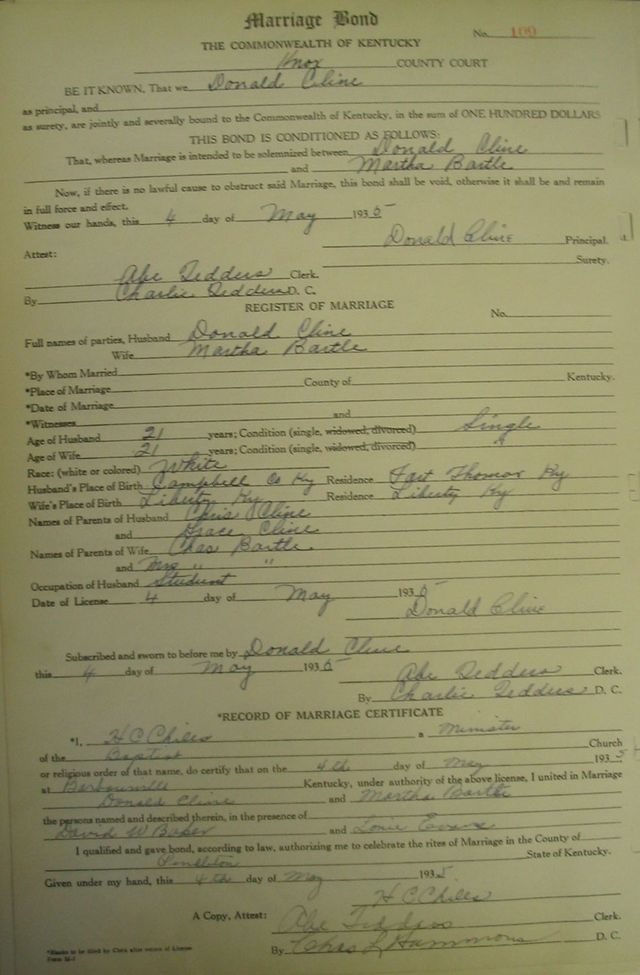 Marriage Bond
No. 100
THE COMMONWEALTH OF KENTUCKY
Knox COUNTY COURT
BE IT KNOWN, That we Donald Cline
as principal, and
as surety, are jointly and severally bound to the Commonwealth of Kentucky, in the sum of ONE HUNDRED DOLLARS
THIS BOND IS CONDITIONED AS FOLLOWS:
That, whereas Marriage is intended to be solemnized between Donald Cline
and Martha Bartle
Now, if there is no lawful cause to obstruct said Marriage, this bond shall be void, otherwise it shall be and remain
in full force and effect.
Witness our hands, this 4 day of May 1935
Donald Cline Principal.
Attest: Surety.
Abe Tedders Clerk.
By Charlie Tedders D. C.
REGISTER OF MARRIAGE
No.
Full names of parties, Husband Donald Cline
Wife Martha Bartle
*By Whom Married
*Place of Marriage County of Kentucky.
*Date of Marriage
*Witnesses and
Age of Husband 21 years; Condition (single, widowed, divorced) Single
Age of Wife 21 years; Condition (single, widowed, divorced) "
Race: (white or colored) White
Husband's Place of Birth Campbell Co Ky Residence Fort Thomas Ky
Wife's Place of Birth Liberty Ky Residence Liberty Ky
Names of Parents of Husband Chris Cline
and Grace Cline
Names of Parents of Wife Chas Bartle
and Mrs " "
Occupation of Husband Student
Date of License 4 day of May 1935
Donald Cline
Subscribed and sworn to before me by Donald Cline
this 4 day of May 1935
Abe Tedders Clerk.
By Charlie Tedders D. C.
*RECORD OF MARRIAGE CERTIFICATE
*I, H C Chiles a Minister
of the Baptist Church
or religious order of that name, do certify that on the 4th day of May 1935
at Barbourville Kentucky, under authority of the above license, I united in Marriage
Donald Cline and Martha Bartle
the persons named and described therein, in the presence of
David W Baker and Evans
I qualified and gave bond, according to law, authorizing me to celebrate the rites of Marriage in the County of
Pendleton State of Kentucky.
Given under my hand, this 4th day of May 1935
H C Chiles
A Copy, Attest: Abe Tedders Clerk.
By Chas L Hammons D. C.
*Blanks to be filled by Clerk after return of License